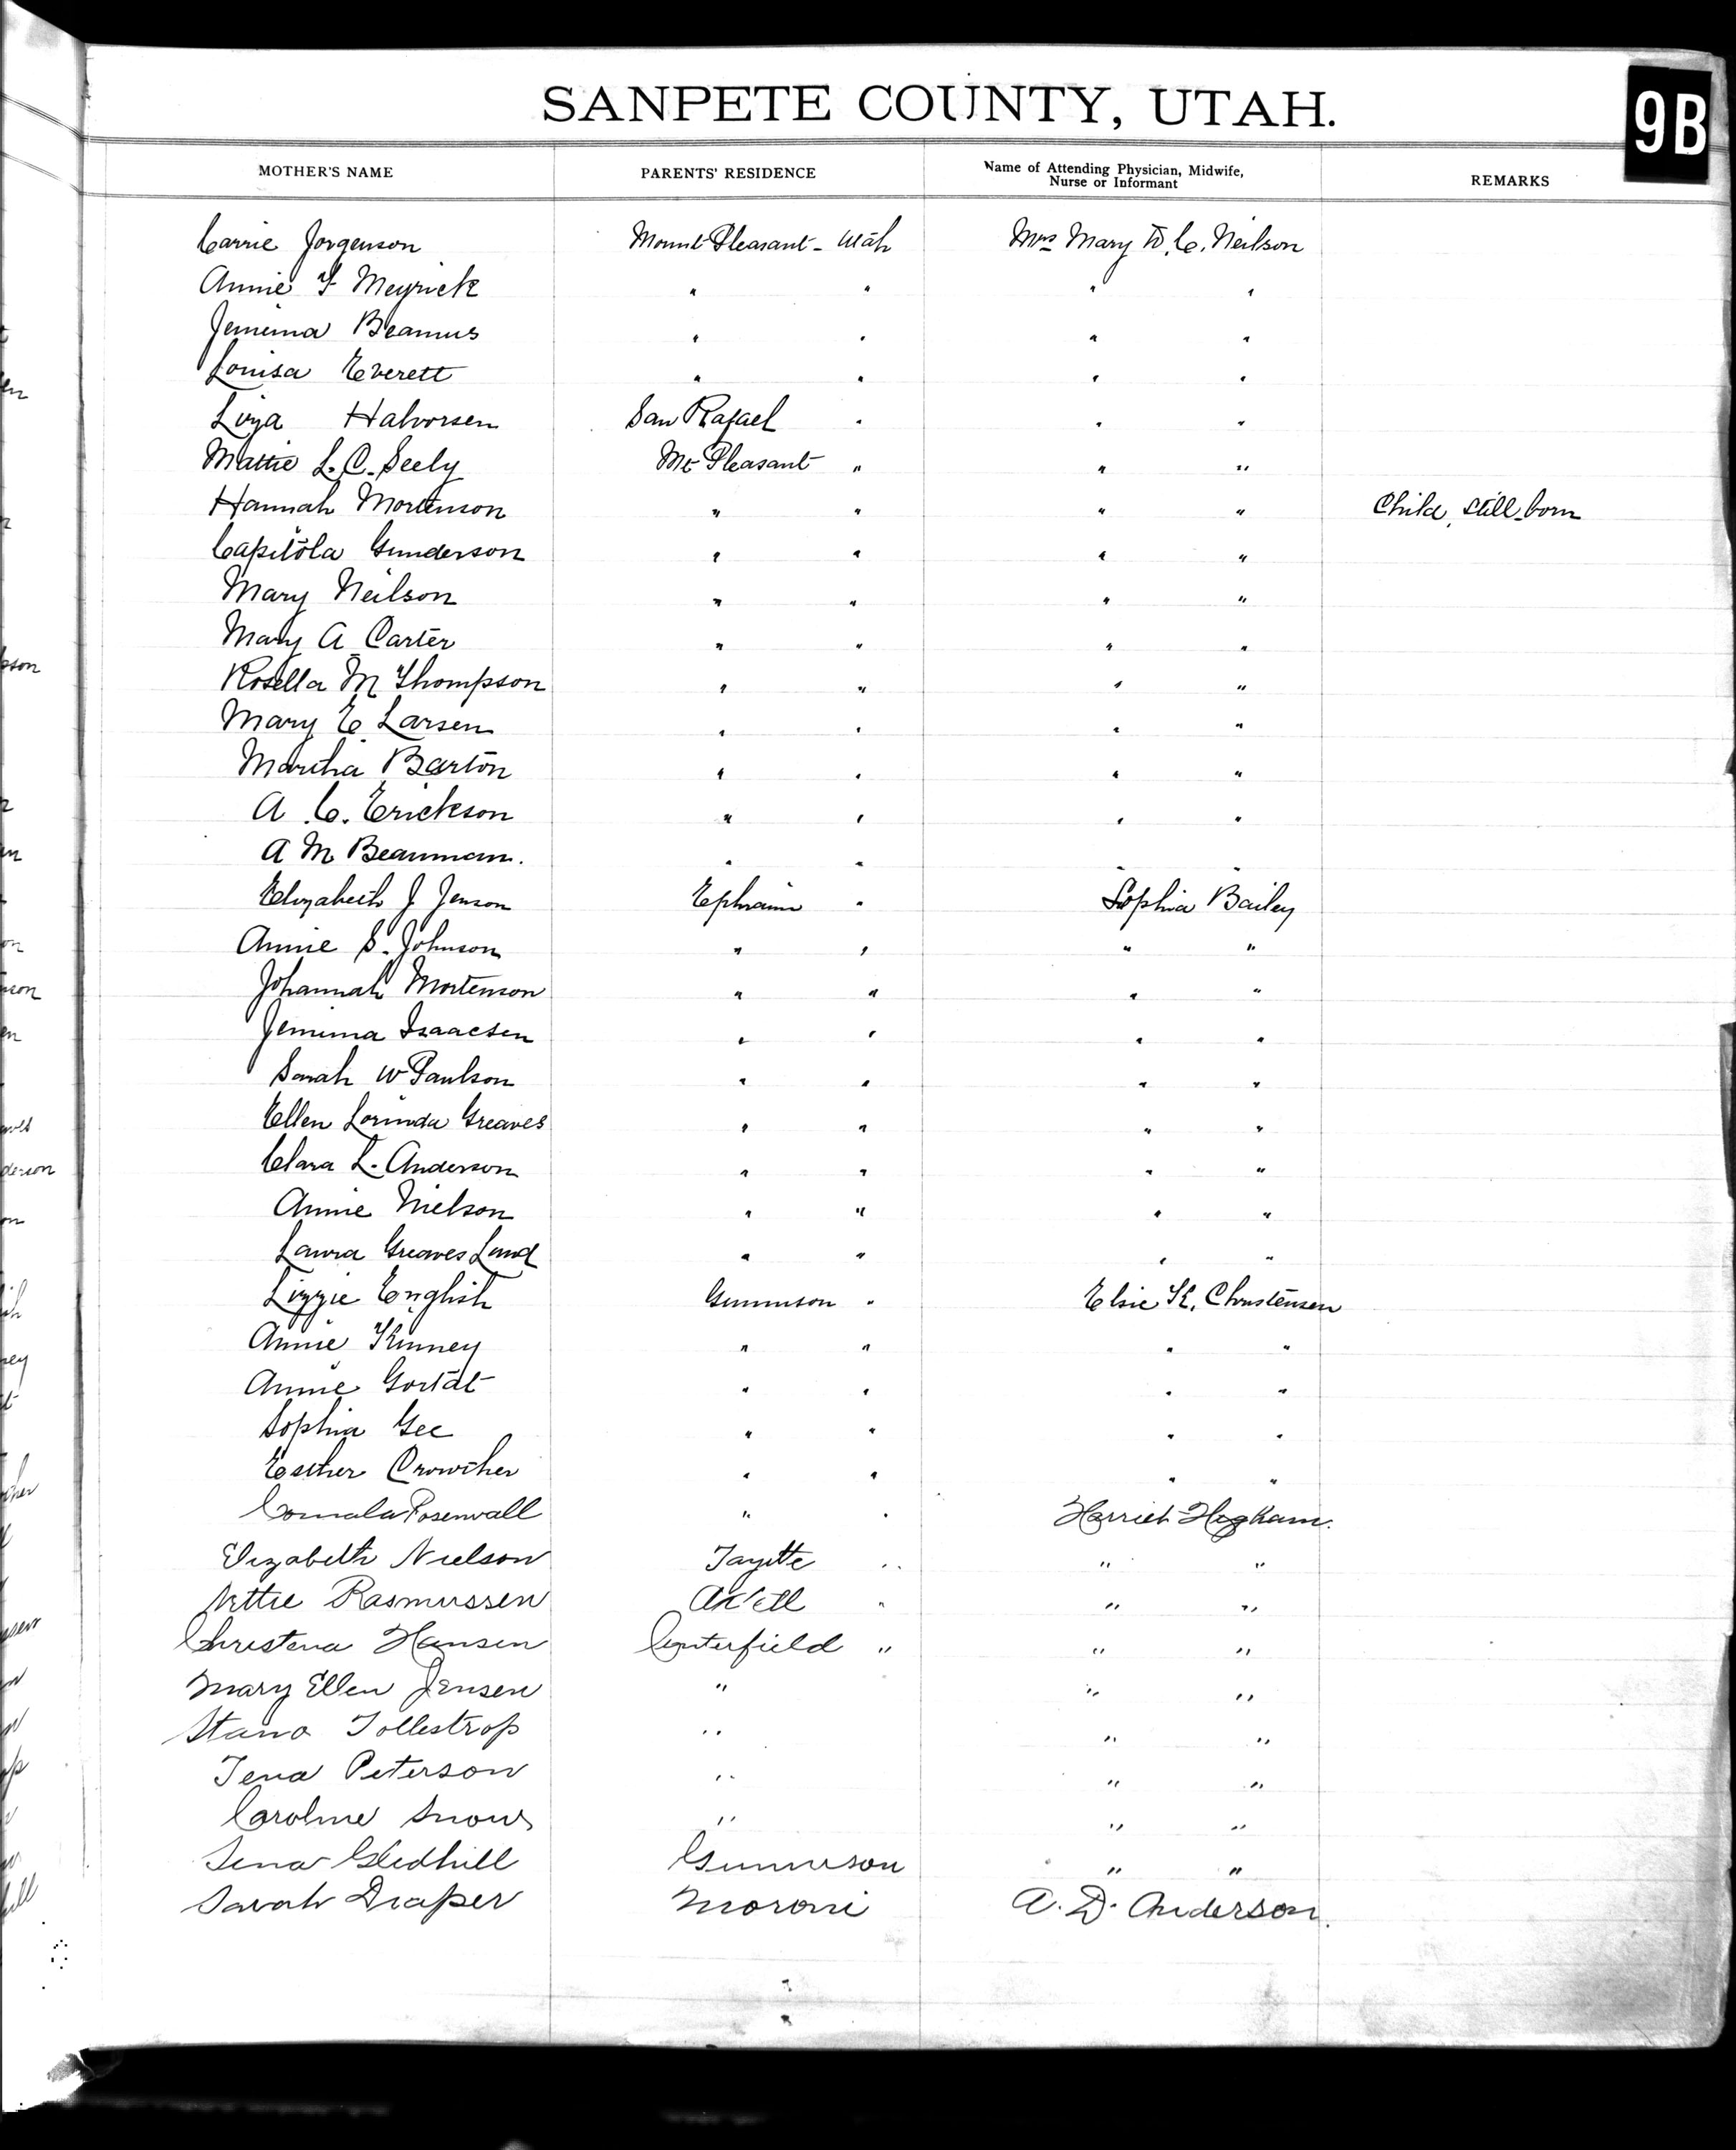 SANPETE COUNTY, UTAH.
9B
MOTHER'S NAME PARENTS' RESIDENCE Name of Attending Physician, Midwife, Nurse or Informant REMARKS
Carrie Jorgenson Mount Pleasant - Utah Mrs Mary W. C. Neilson
Annie F Meyrick " " " "
Jemima Beamus " " " "
Louisa Everett " " " "
Liza Halvorsen San Rafael " " "
Mattie L. C. Seely Mt Pleasant " " "
Hannah Mortenson " " " " Child still born
Capitola Gunderson " " " "
Mary Neilson " " " "
Mary A Carter " " " "
Rosella M Thompson " " " "
Mary E Larsen " " " "
Martha Barton " " " "
A. C. Erickson " " " "
A M Beauman. " " " "
Elizabeth J Jenson Ephraim " Sophia Bailey
Annie S. Johnson " " " "
Johannah Mortenson " " " "
Jemima Isaacsen " " " "
Sarah W Paulson " " " "
Ellen Lorinda Greaves " " " "
Clara L. Anderson " " " "
Annie Nielson " " " "
Laura Greaves Lund " " " "
Lizzie English Gunnison " Elsie K. Christensen
Annie Kinney " " " "
Annie " " " "
Sophia Gee " " " "
Esther Crowther " " " "
Rosenvall " " Harriet
Elizabeth Nielson Fayette " " "
Nettie Rasmussen Axtell " " "
Christena Hansen Centerfield " " "
Mary Ellen Jensen " " "
Tollestrop " " "
Tena Peterson " " "
Caroline Snow " " "
Sena Gledhill Gunnison " "
Sarah Draper Moroni A. D. Anderson.